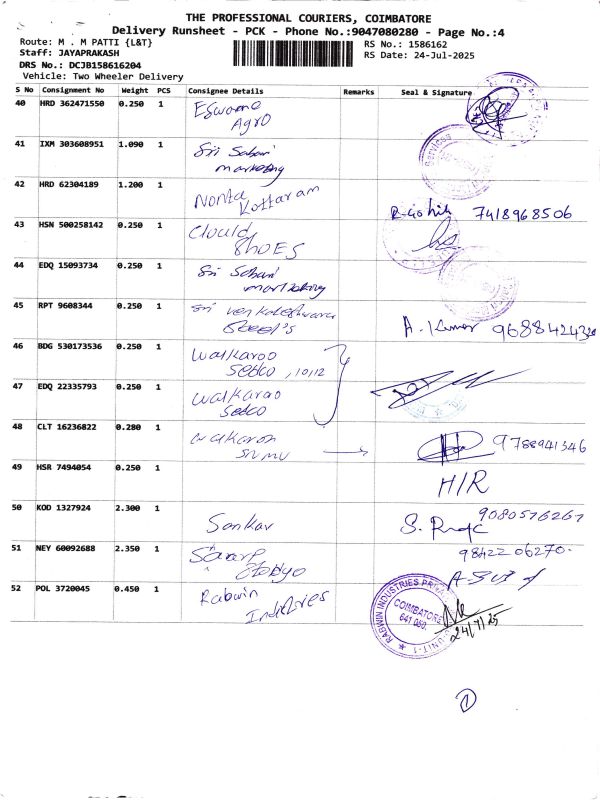 THE PROFESSIONAL COURIERS, COIMBATORE
Delivery Runsheet - PCK - Phone No.:9047080280 - Page No.:4
Route: M . M PATTI {L&T}
RS No.: 1586162
Staff: JAYAPRAKASH
RS Date: 24-Jul-2025
DRS No.: DCJB158616204
Vehicle: Two Wheeler Delivery
S No Consignment No Weight PCS Consignee Details Remarks Seal & Signature
40 HRD 362471550 0.250 1 Eswame
Agro
41 IXM 303608951 1.090 1 Sri Sabari
marketing
42 HRD 62304189 1.200 1 Nonta
Kottaram
7418968506
43 HSN 500258142 0.250 1 Clould
SHOES
44 EDQ 15093734 0.250 1 Sri Sabari
marketing
45 RPT 9608344 0.250 1 Sri venkateshwara
Steel's
A. Kumar
46 BDG 530173536 0.250 1 Walkaroo
Sedco , 10,12
47 EDQ 22335793 0.250 1 Walkaroo
Sedco
48 CLT 16236822 0.280 1 Walkaroo
9788941346
49 HSR 7494054 0.250 1
H/R
50 KOD 1327924 2.300 1 Sankar
9080516267
51 NEY 60092688 2.350 1
9842206270.
52 POL 3720045 0.450 1 Rabwin
Industries
RABWIN INDUSTRIES
COIMBATORE
641 050.
UNIT-1
24/7/25
1